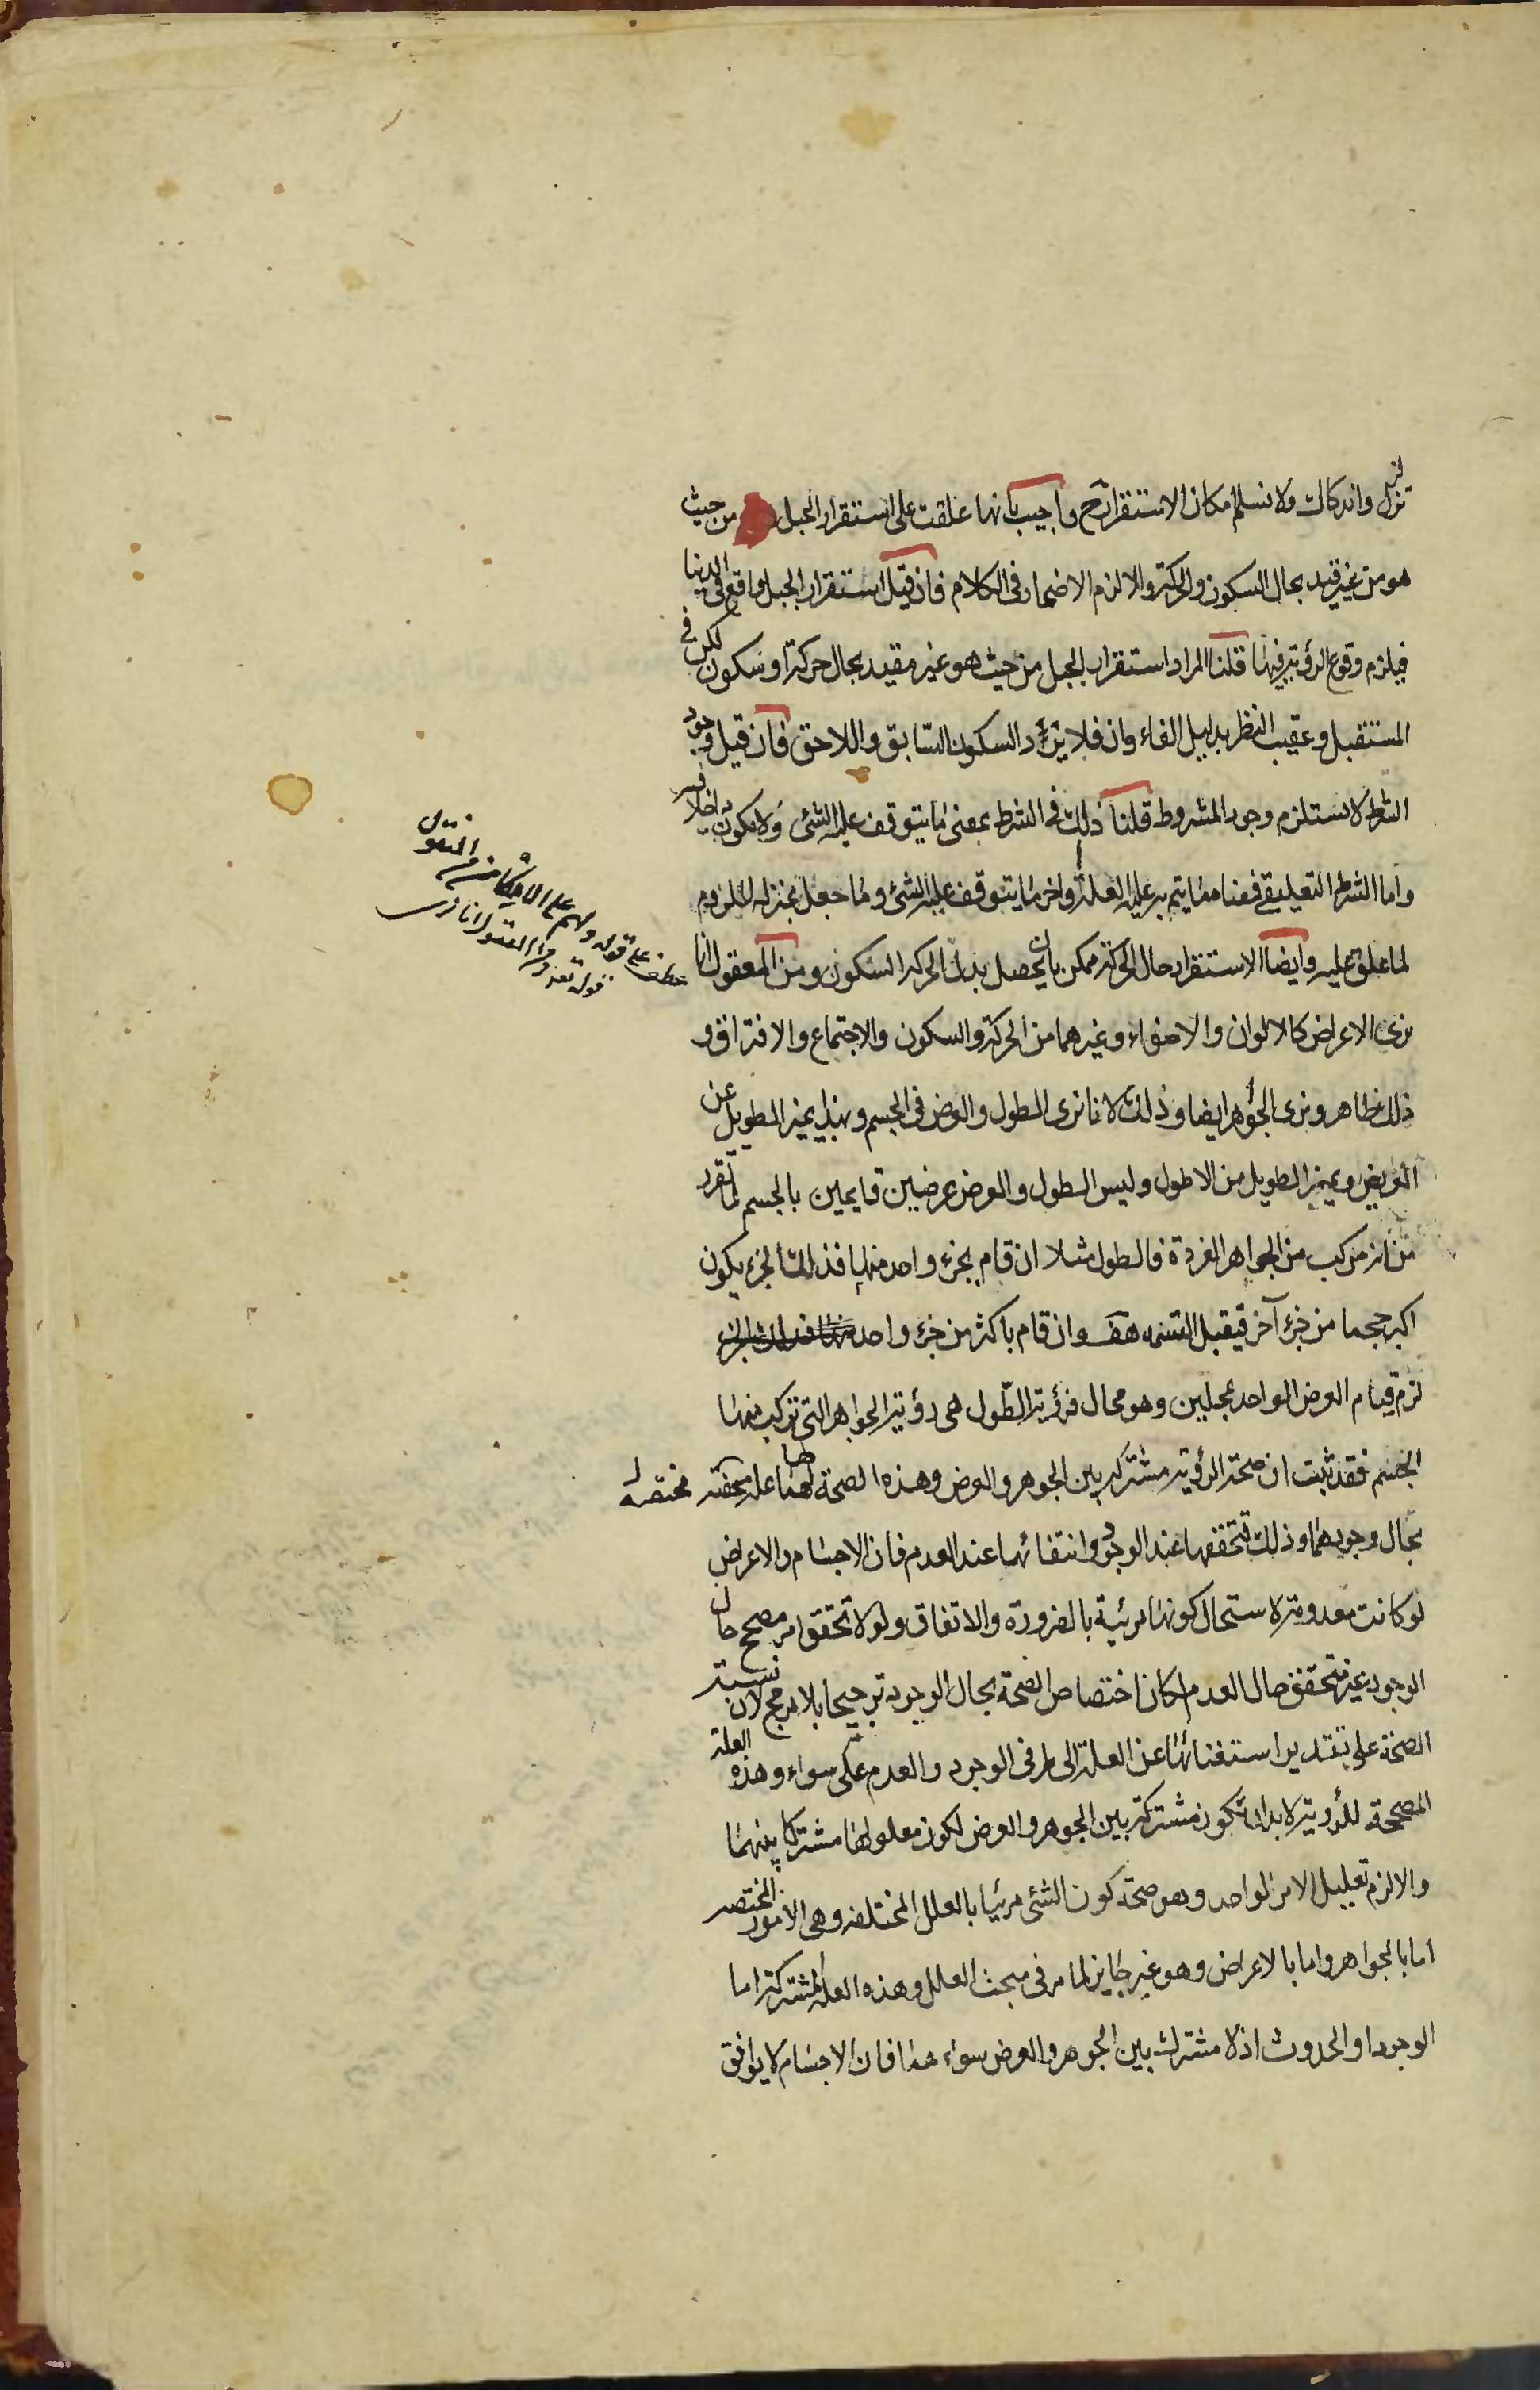 تزلزل واندكاك ولا نسلم امكان الاستقرار ح واجيب بانها علقت على استقرار الجبل من حيث
هو من غير قيد بحال السكون والحركة والا لزم الاضمار فى الكلام فان قيل استقرار الجبل واقع فى الدنيا
فيلزم وقوع الرؤية فيها قلنا المراد استقرار الجبل من حيث هو غير مقيد بحال حركة او سكون لكن فى
المستقبل وعقيب النظر بدليل الفاء وان فلا يرد السكون السابق واللاحق فان قيل وجود
الشرط لا يستلزم وجود المشروط قلنا ذلك فى الشرط بمعنى ما يتوقف عليه الشئ ولا يكون داخلا فيه
واما الشرط التعليقى فمعناه ما يتم به علية العلة واخر ما يتوقف عليه الشئ وما جعل بمنزلة الملزوم
لما علق عليه وايضا الاستقرار حال الحركة ممكن بان يحصل بدل الحركة السكون ومن المعقول انا
نرى الاعراض كالالوان والاضواء وغيرهما من الحركة والسكون والاجتماع والافتراق و
ذلك ظاهر ونرى الجواهر ايضا وذلك لانا نرى الطول والعرض فى الجسم وبهذا يميز الطويل عن
العريض ويميز الطويل من الاطول وليس الطول والعرض عرضين قايمين بالجسم لما تقرر
من انه مركب من الجواهر الفردة فالطول مثلا ان قام بجزء واحد منها فذلك الجزء يكون
اكبر حجما من جزء آخر فيقبل القسمة هف وان قام باكثر من جزء واحد منها فذلك الجزء
لزم قيام العرض الواحد بمحلين وهو محال فرؤية الطول هى رؤية الجواهر التى تركب منها
الجسم فقد ثبت ان صحة الرؤية مشتركة بين الجوهر والعرض وهذه الصحة لها علة مختصة
بحال وجودهما وذلك لتحققها عند الوجود وانتفائها عند العدم فان الاجسام والاعراض
لو كانت معدومة لاستحال كونها مرئية بالضرورة والاتفاق ولولا تحقق امر مصحح حال
الوجود غير متحقق حال العدم لكان اختصاص الصحة بحال الوجود ترجيحا بلا مرجح لان نسبة
الصحة على تقدير استغنائها عن العلة الى طرفى الوجود والعدم على سواء وهذه العلة
المصححة للرؤية لا بد ان تكون مشتركة بين الجوهر والعرض لكون معلولها مشتركا بينهما
والا لزم تعليل الامر الواحد وهو صحة كون الشئ مرئيا بالعلل المختلفة وهى الامور المختصة
اما بالجواهر واما بالاعراض وهو غير جايز لما مر فى مبحث العلل وهذه العلة المشتركة اما
الوجود او الحدوث اذ لا مشترك بين الجوهر والعرض سواهما فان الاجسام لا يوافق
عطف على قوله ولهم على الامكان من المنقول
قوله تعه ومن المعقول انا نرى